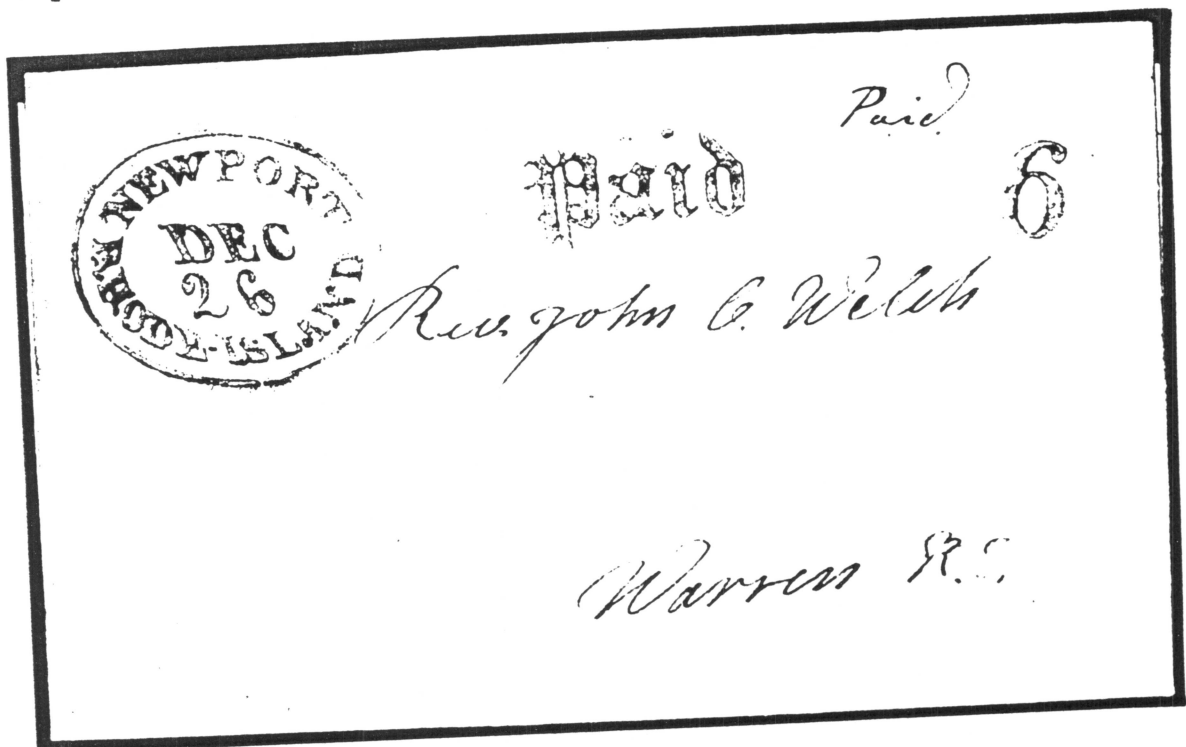 NEWPORT
DEC
26
RHODE-ISLAND
Paid
Paid
6
Rev. John C. Welch
Warren R.I.